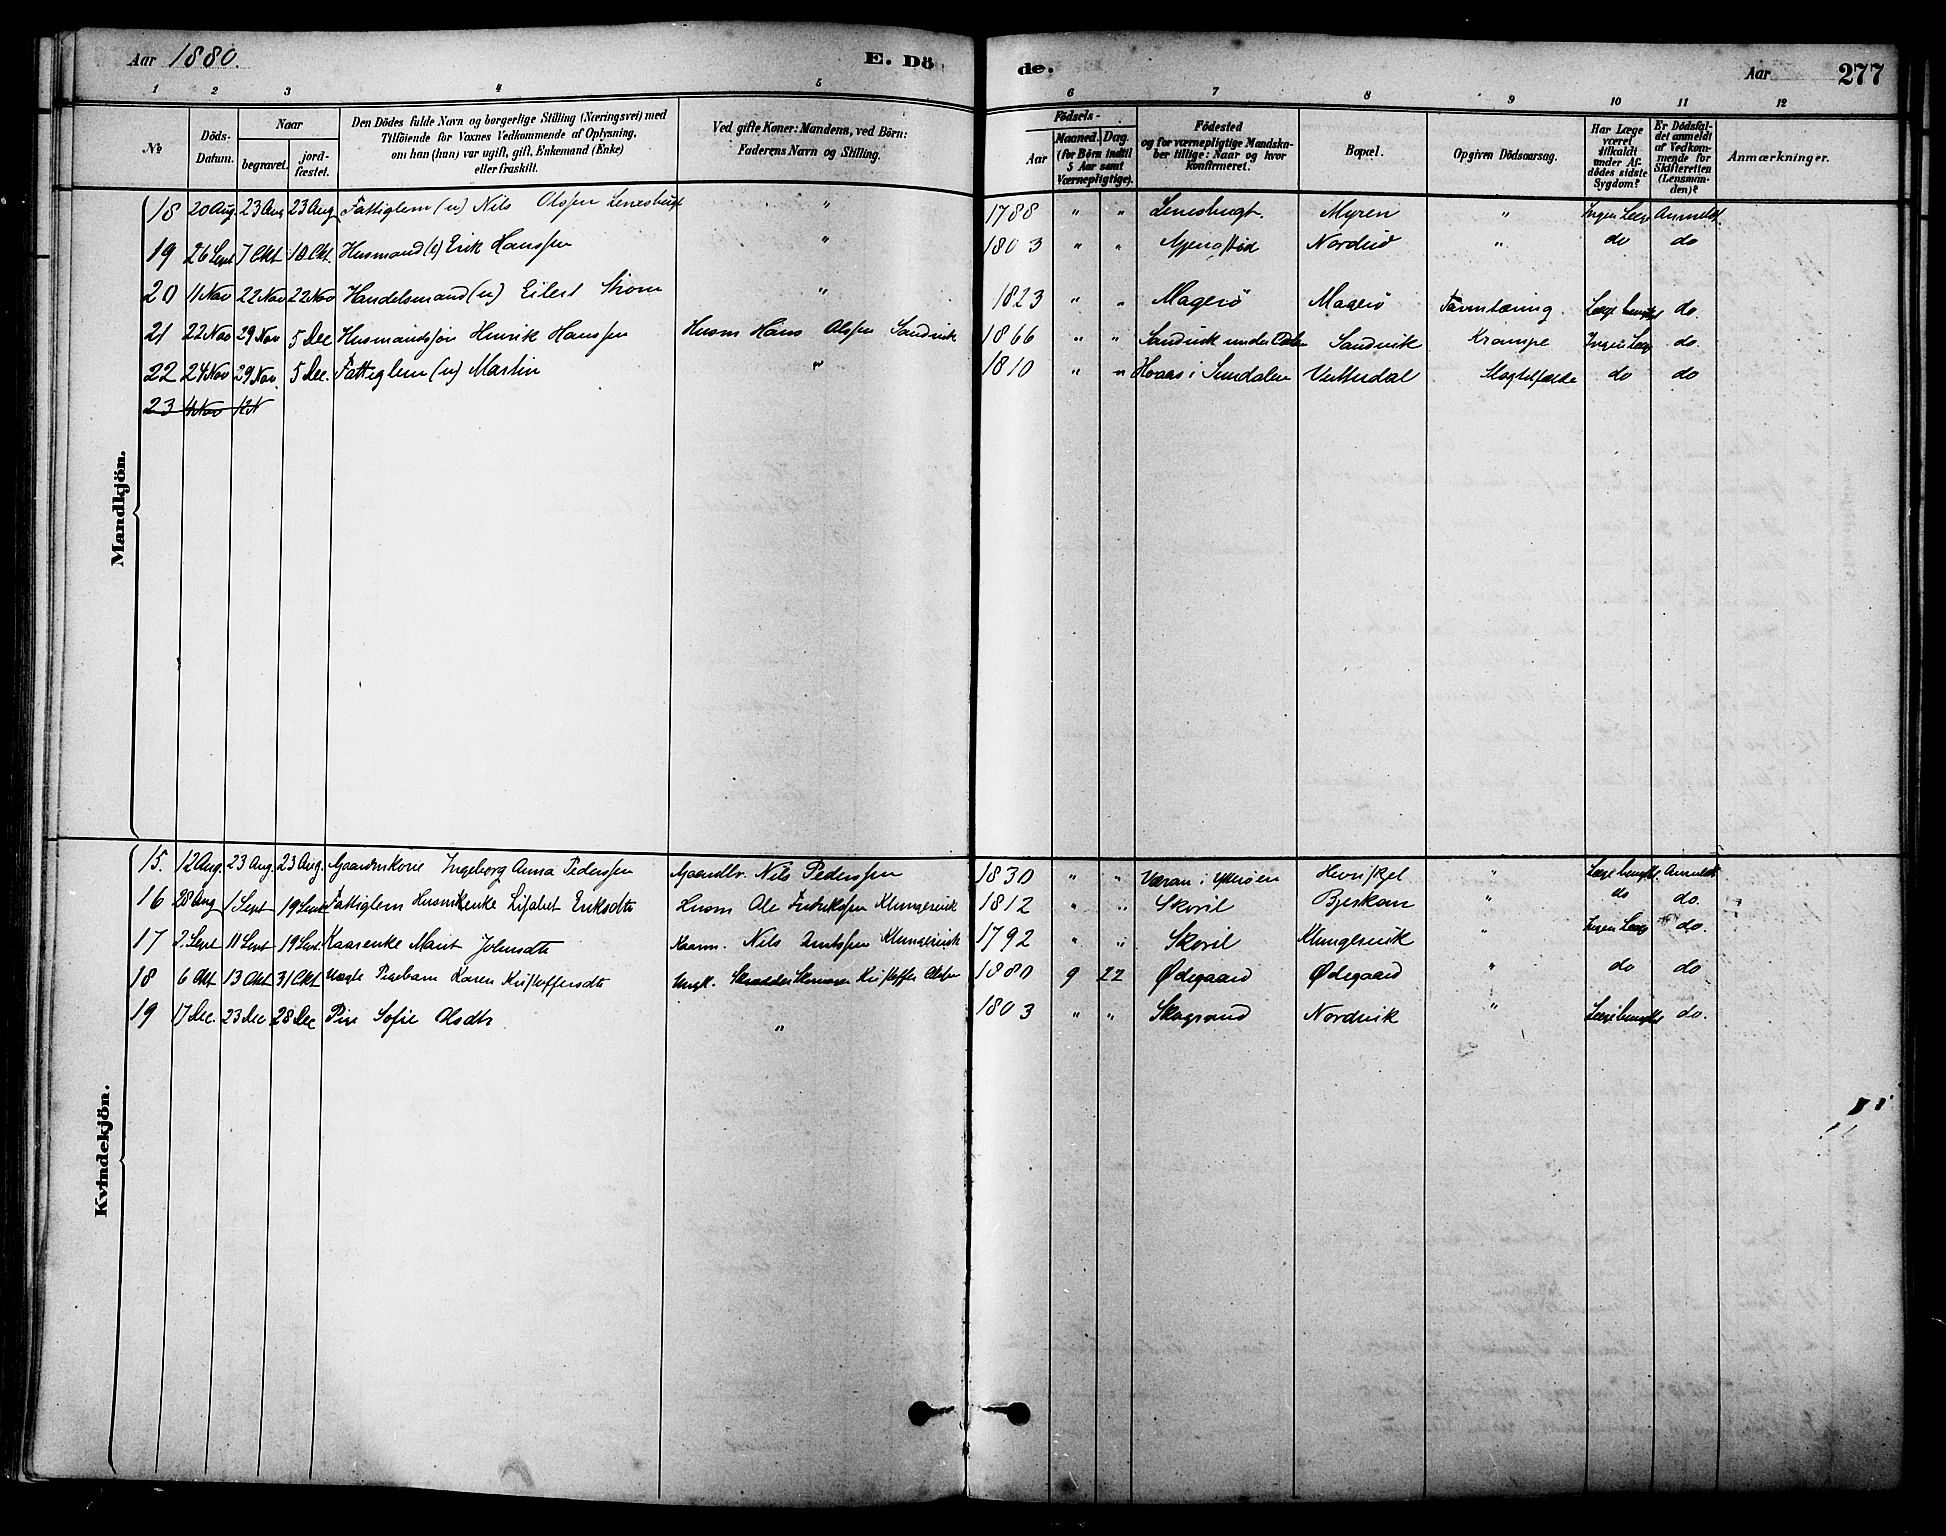 Aar 1880. E. Dö de. Aar 277
1 2 3 4 5 6 7 8 9 10 11 12
№
Döds-Datum.
Naar
begravet.
jord-fæstet.
Den Dödes fulde Navn og borgerlige Stilling (Næringsvei) med
Tilföiende för Voxnes Vedkommende af Oplysning,
om han (hun) var ugift, gift, Enkemand (Enke)
eller fraskilt.
Ved gifte Koner: Mandens, ved Börn:
Faderens Navn og Stilling.
Födsels-
Aar
Maaned. Dag.
(for Börn indtil
5 Aar samt
Værnepligtige).
Födested
og for værnepligtige Mandska-
ber tillige: Naar og hvor
konfirmeret.
Bopæl.
Opgiven Dödsaarsag.
Har Læge
været
tilkaldt
under Af-
dödes sidste
Sygdom?
Er Dödsfal-
det anmeldt
af Vedkom-
mende for
Skifteretten
(Lensman-
den)?
Anmærkninger.
Mandkjön.
18 20 Aug 23 Aug 23 Aug Fattiglem (u) Nils Olssen Lenesbugt " 1788 " " Lenesbugt. Myren " Ingen Læge Anmeldt.
19 26 Sept 7 Okt 10 Okt. Husmand (e) Erik Hanssen " 1803 " " Nordvik " do do
20 11 Nov 22 Nov 22 Nov Handelsmand (u) Eilert Strøm " 1823 " " Magerö Magerö Tarmtæring. Læge benyttet do.
21 22 Nov 29 Nov 5 Dec Husmandssøn Henrik Hanssen Husm Hans Olssen Sandvik 1866 " " Sandvik under Sandvik Krampe Ingen Læge do.
22 24 Nov 29 Nov. 5 Dec. Fattiglem (u) Martin " 1810 " " Hoaas i Sundalen Slagtilfælde do do
23 4 Nov 12 N
Kvindekjön.
15. 12 Aug. 23 Aug. 23 Aug. Gaardmkone Ingeborg Anna Pederssen Gaardbr. Nils Pederssen 1830 " " Værran i Ytterøen " Læge benyttet Anmeldt
16 28 Aug 1 Sept 19 Sept Fattiglem Husmenke Lisabet Eriksdtr Husm Ole Fredrikssen Klungervik 1812 " " Skovil " do do.
17 2 Sept 11 Sept 19 Sept. Kaarenke Marit Johnsdtr Kaarm. Nils Arntssen Klungervik 1792 " " Skovil Klungervik " Ingen Læge do.
18 6 Okt 13 Okt 31 Okt Uægte Pigebarn Karen Kristoffersdtr Ungk. Skrædder Kristoffer Olssen 1880 9 22 Ødegaard Ødegaard " do do
19 17 Dec. 23 Dec 28 Dec Pige Sofie Olsdtr " 1803 " " Nordvik " Læge benyttet do.